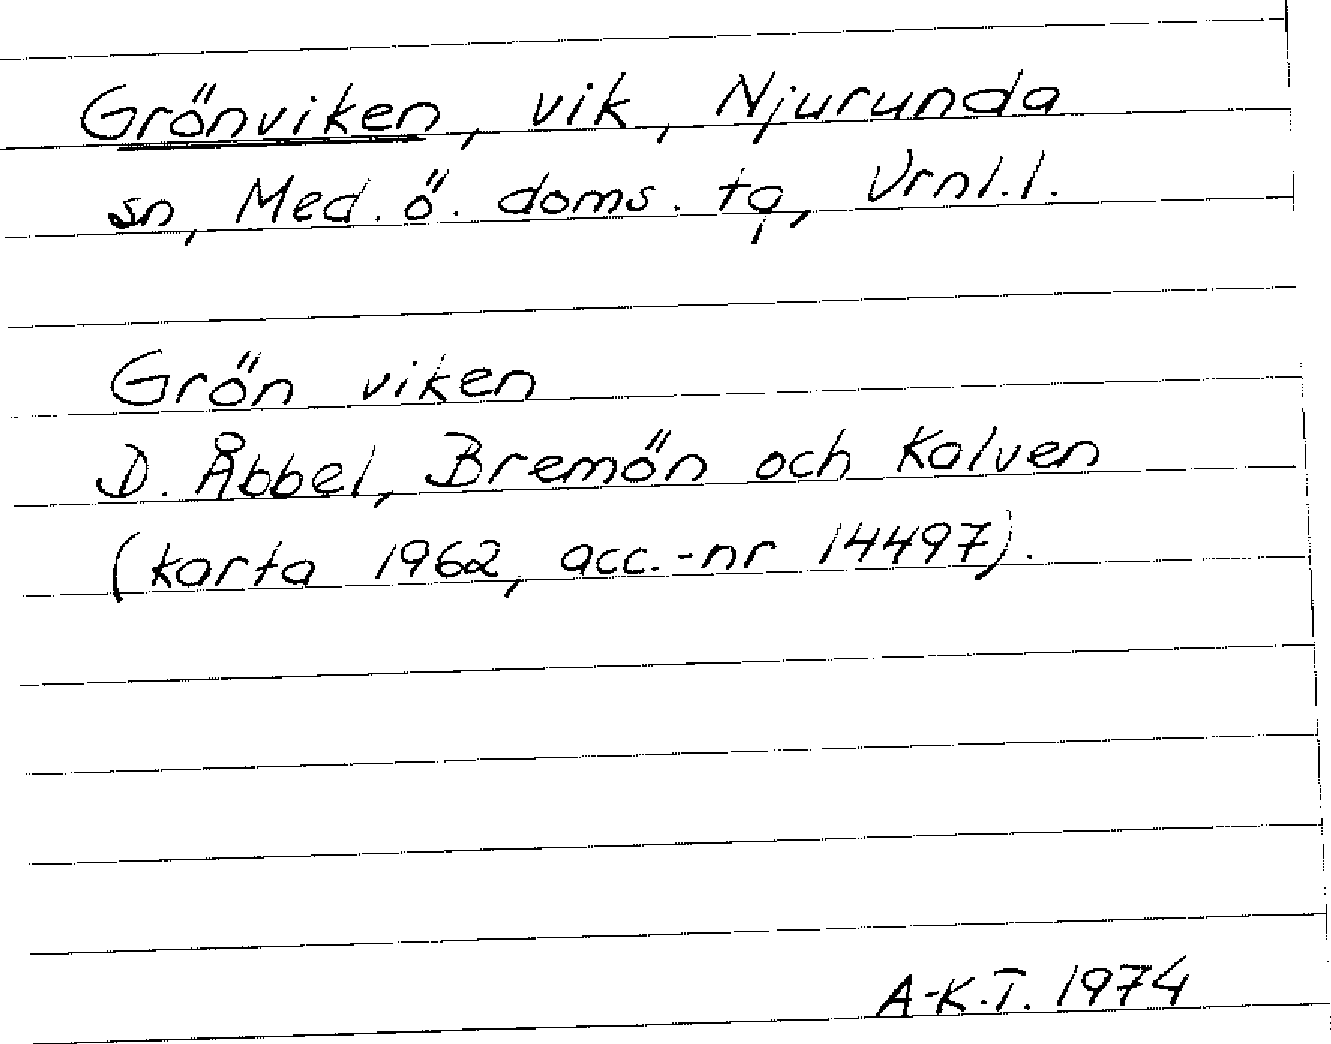 Grönviken, vik, Njurunda
sn, Med. ö. doms. tg, Vrnl.l.
Grön viken
D. Åbbel, Bremön och Kalven
(karta 1962, acc.-nr 14497).
A-K.T. 1974